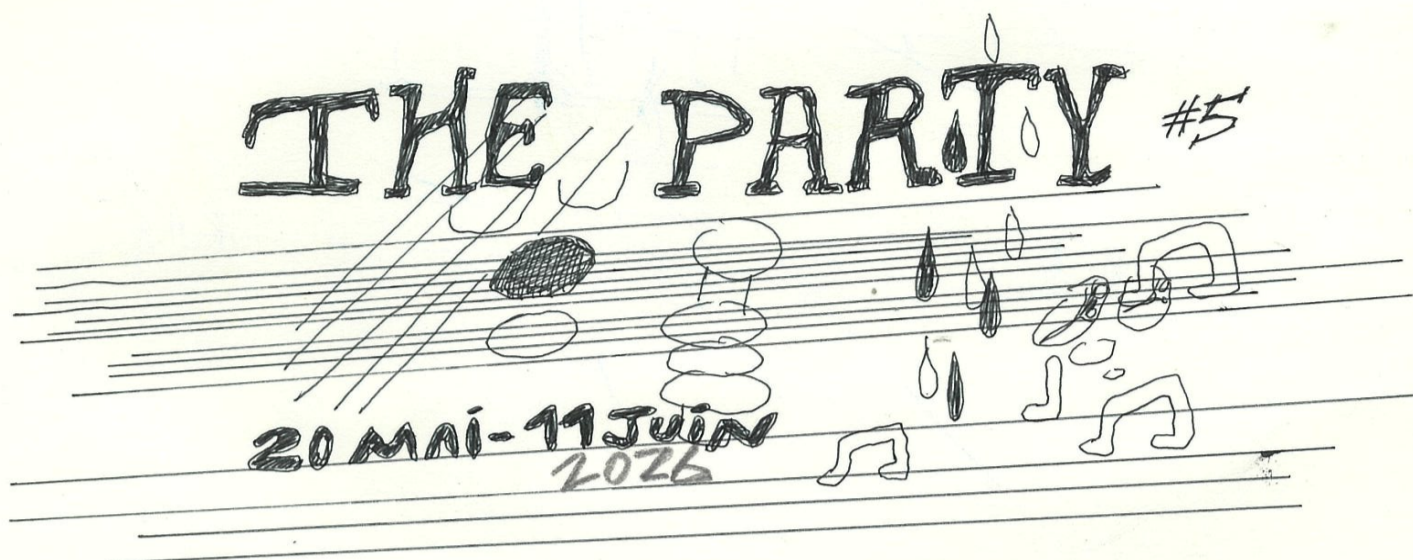 THE PARTY #5
20 MAI - 11 JUIN
2026